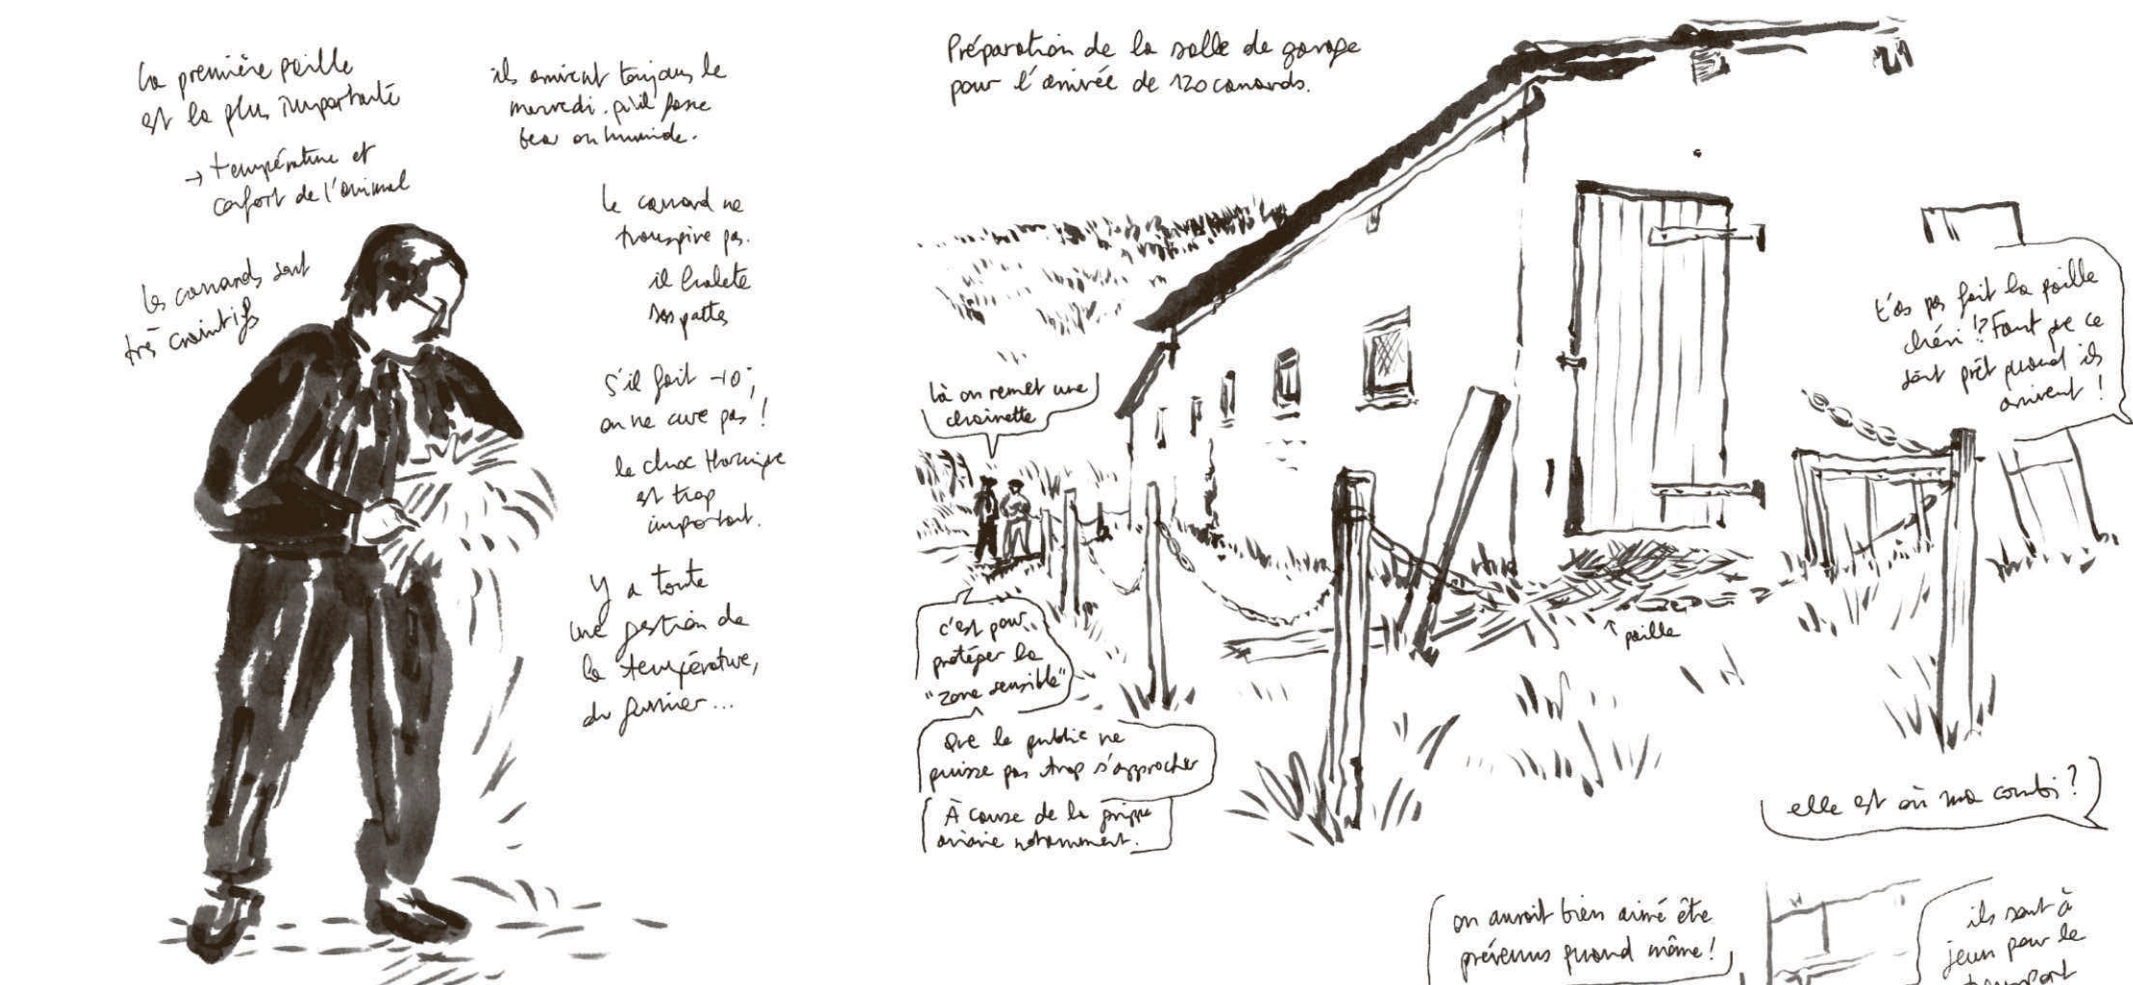 la première paille
est la plus importante
→ température et
confort de l'animal
les canards sont
très craintifs
ils arrivent toujours le
mercredi. qu'il fasse
beau ou humide.
le canard ne
transpire pas.
il halète
ses pattes
S'il fait -10°,
on ne cure pas !
le choc thermique
est trop
important.
Y a toute
une gestion de
la température,
du fumier...
Préparation de la salle de gavage
pour l'arrivée de 120 canards.
là on remet une
chainette
c'est pour
protéger la
"zone sensible"
Que le public ne
puisse pas trop s'approcher
À cause de la grippe
aviaire notamment.
t'as pas fait la paille
chéri !? Faut que ce
soit prêt quand ils
arrivent !
↑ paille
elle est où ma combi ?
on aurait bien aimé être
prévenus quand même !
ils sont à
jeun pour le
transport